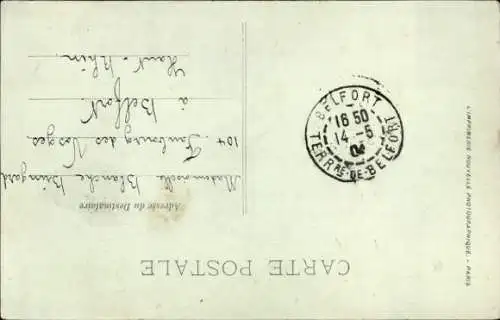 CARTE POSTALE
Adresse du Destinataire
Mademoiselle Blanche
104 Faubourg des Vosges
à Belfort
Haut-Rhin
BELFORT
16 50
14 -5
04
TERRRE-DE-BELFORT
IMPRIMERIE NOUVELLE PHOTOGRAPHIQUE. - PARIS